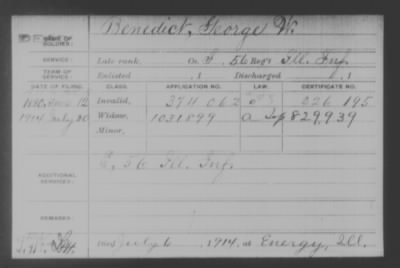 NAME OF SOLDIER: Benedict, George W.
SERVICE: Late rank, Co. F, 56 Reg't Ill. Inf.
TERM OF SERVICE: Enlisted , 1 Discharged , 1
DATE OF FILING. CLASS. APPLICATION NO. LAW. CERTIFICATE NO.
1880, 12 Invalid, 374 062 226 195
1914 July 20 Widow, 1031899 829,939
Minor,
ADDITIONAL SERVICES: 56 Ill. Inf.
REMARKS:
Died July 6, 1914, at Energy, Ill.